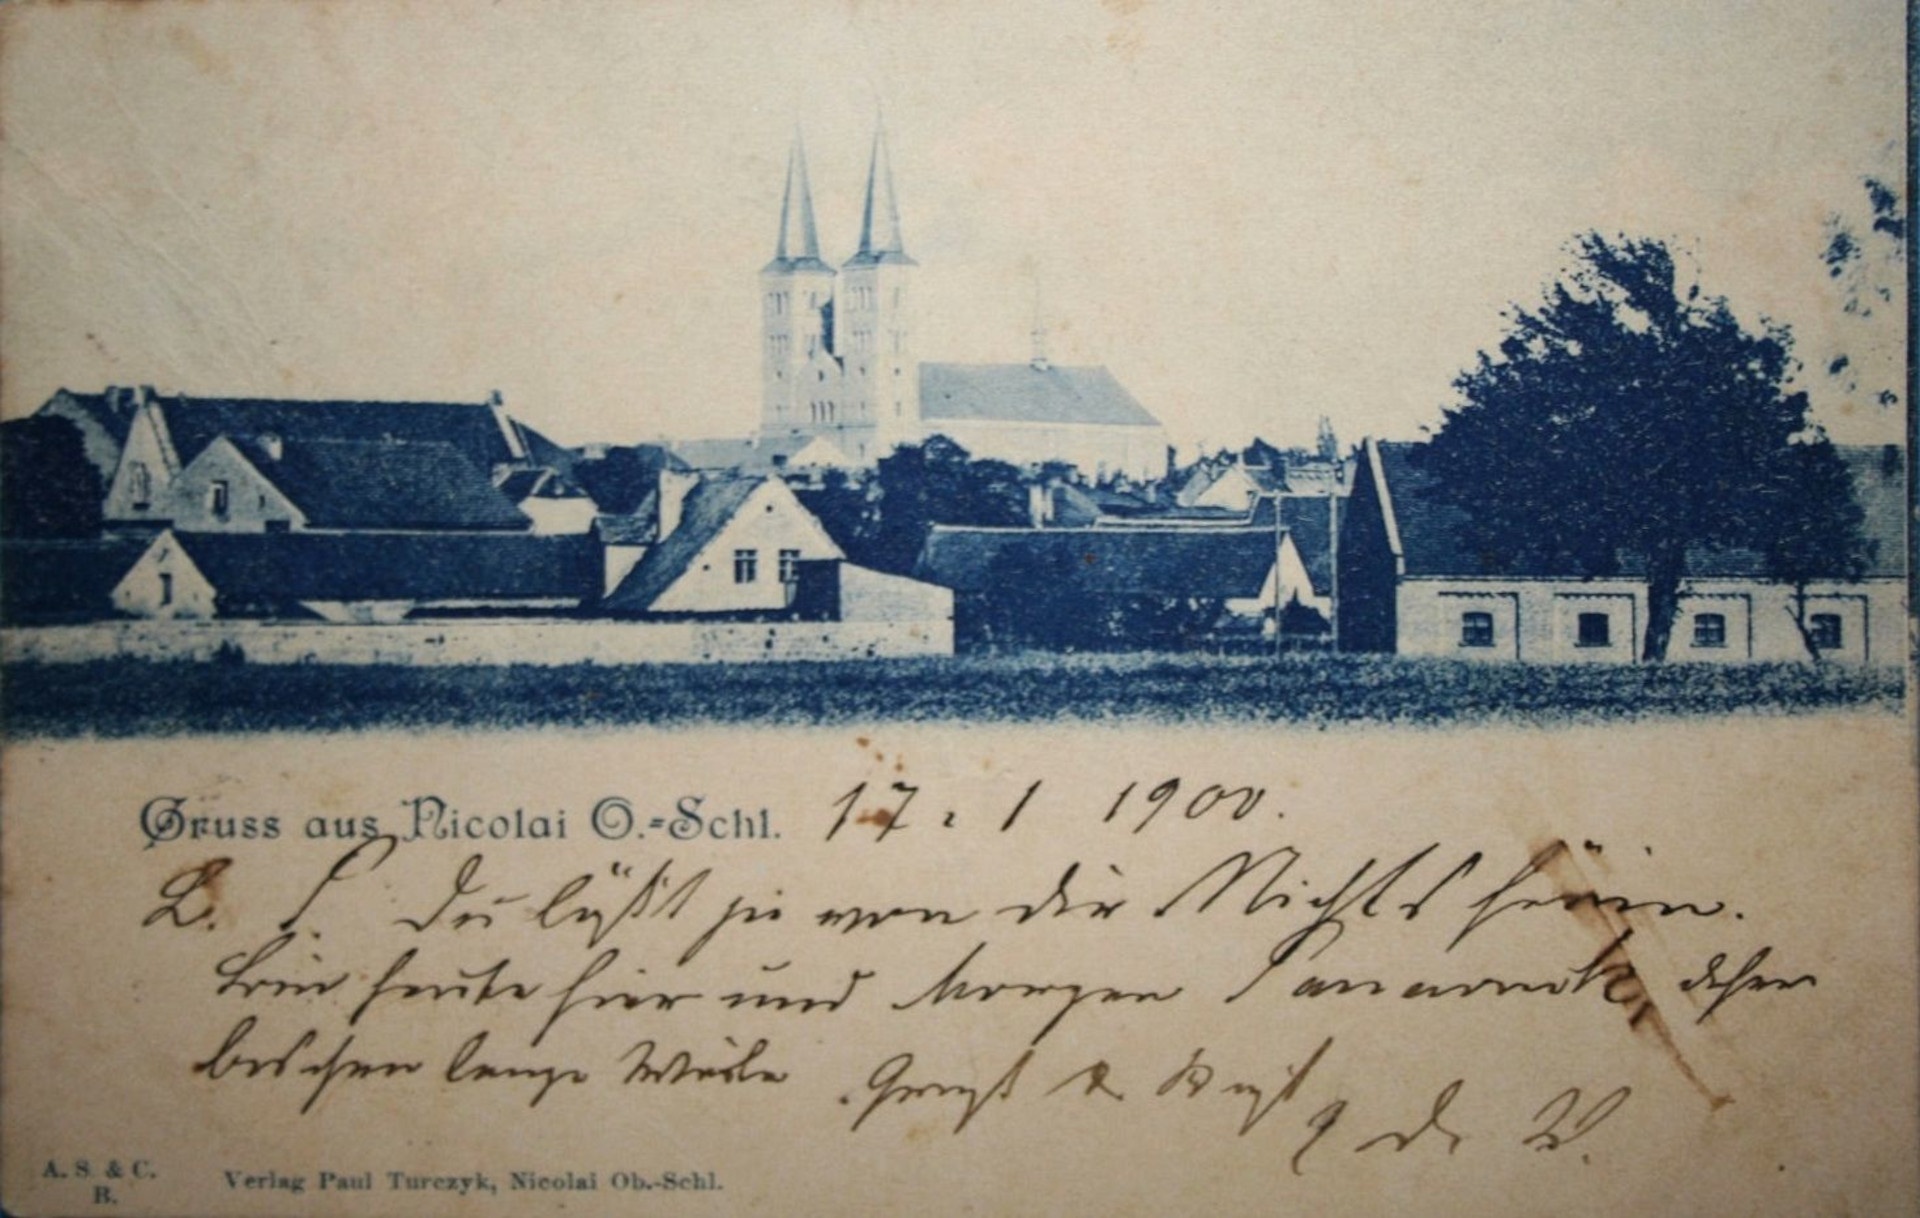 Gruss aus Nicolai O.-Schl. 17. 1 1900.
L. S. Du läßt ja von dir Nichts hören.
bin heute hier und Morgen
bischen lange Weile Gruß & Kuß
d. W.
A. S. & C.
B.
Verlag Paul Turczyk, Nicolai Ob.-Schl.